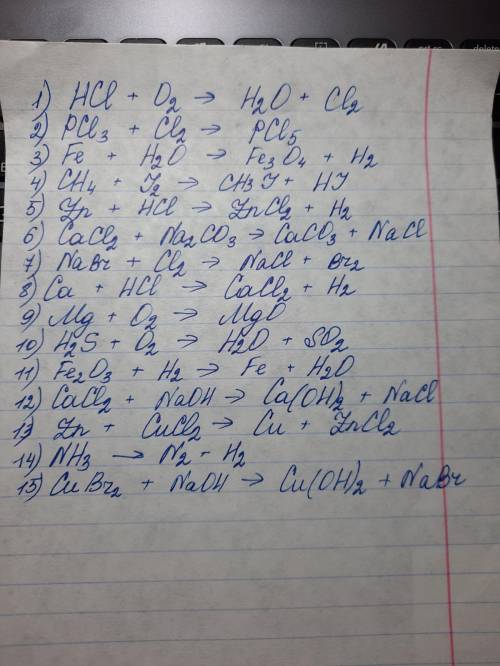 1) HCl + O2 → H2O + Cl2
2) PCl3 + Cl2 → PCl5
3) Fe + H2O → Fe3O4 + H2
4) CH4 + J2 → CH3J + HJ
5) Zn + HCl → ZnCl2 + H2
6) CaCl2 + Na2CO3 → CaCO3 + NaCl
7) NaBr + Cl2 → NaCl + Br2
8) Ca + HCl → CaCl2 + H2
9) Mg + O2 → MgO
10) H2S + O2 → H2O + SO2
11) Fe2O3 + H2 → Fe + H2O
12) CaCl2 + NaOH → Ca(OH)2 + NaCl
13) Zn + CuCl2 → Cu + ZnCl2
14) NH3 → N2 - H2
15) CuBr2 + NaOH → Cu(OH)2 + NaBr